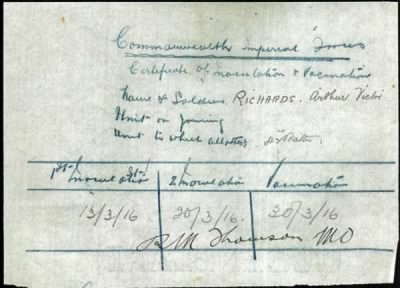 Commonwealth Imperial Forces
Certificate of Inoculation & Vaccination
Name of Soldier RICHARDS. Arthur Victor
Unit on joining
Unit to which allotted
1st Inoculation 2 Inoculation Vaccination
13/3/16 20/3/16. 30/3/16
R M Thomson MO